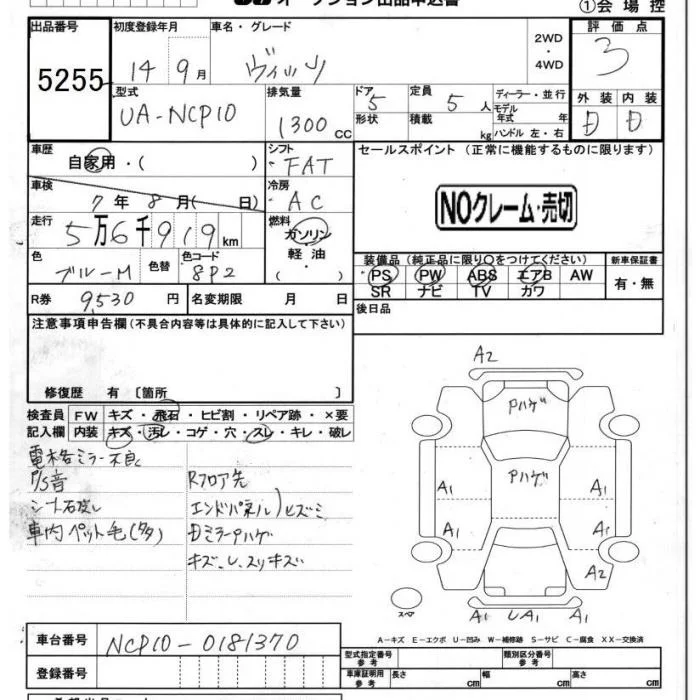 オークション出品申込書
①会場控
出品番号 初度登録年月 車名・グレード 評価点
5255 14 9月 ヴィッツ 2WD ・4WD 3
型式 排気量 ドア 定員 ディーラー・並行 外装 内装
UA-NCP10 1300cc 5 5人 モデル年式 年 D D
形状 積載 kg ハンドル 左・右
車歴 シフト セールスポイント(正常に機能するものに限ります)
自家用・( ) FAT
車検 冷房
7年8月( 日) AC NOクレーム・売切
走行 燃料
5万6千919km ガソリン
色 色替 色コード 軽油 装備品(純正品に限り○をつけてください) 新車保証書
ブルーM 8P2 ・( ) PS PW ABS エアB AW 有・無
SR ナビ TV カワ
R券 9530円 名変期限 月 日 後日品
注意事項申告欄(不具合内容等は具体的に記入して下さい)
修復歴 有 〔箇所 〕
検査員 FW キズ・飛石・ヒビ割・リペア跡・×要
記入欄 内装 キズ・汚レ・コゲ・穴・スレ・キレ・破レ
電格ミラー不良
P/S音 Rフロア先
シート石戻し エンドパネル)ヒズミ
車内ペット毛(多) Dミラーアハゲ
キズ、U、スリキズ
A2
Pハゲ
Pハゲ
A1 A1
A1 A1
A2
スペア A1 UA1 A1
A-キズ E-エクボ U-凹み W-補修跡 S-サビ C-腐食 XX-交換済
車台番号 NCP10-0181370
型式指定番号参考 類別区分番号参考
登録番号 車庫証明用参考 長さ cm 幅 cm 高さ cm